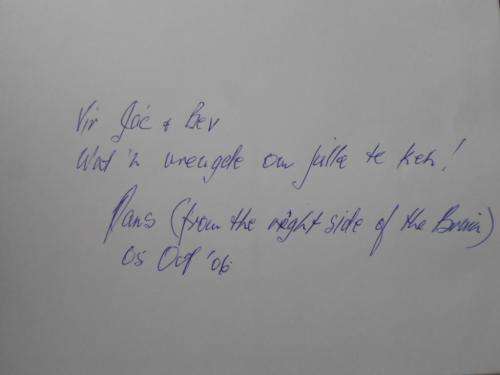 Vir Joc + Bev
Wat 'n vreugde om julle te ken!
(from the right side of the Brain)
05 Oct '06